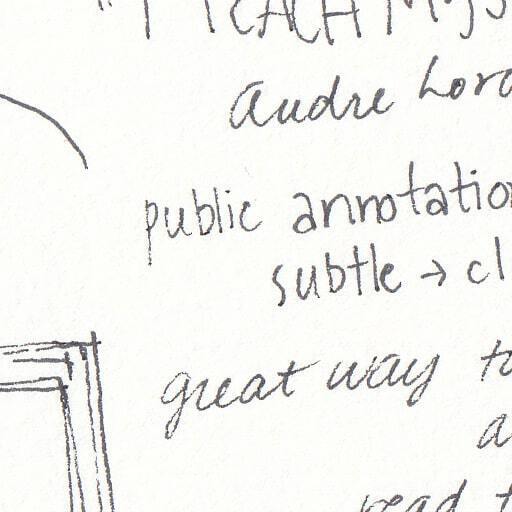 "I TEACH MYS
Audre Lord
public annotation
subtle → cl
great way to
a
read t